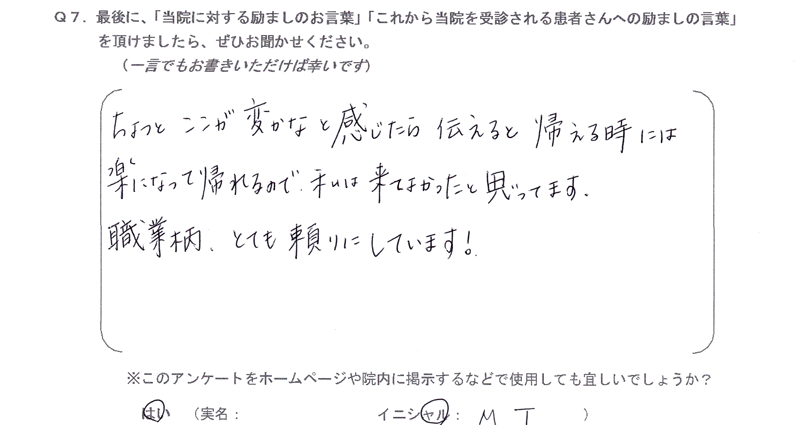 Q7．最後に、「当院に対する励ましのお言葉」「これから当院を受診される患者さんへの励ましの言葉」
を頂けましたら、ぜひお聞かせください。
（一言でもお書きいただけば幸いです）
ちょっと ココが 変かなと感じたら 伝えると 帰える時には
楽になって帰れるので、私は来てよかったと思ってます。
職業柄、とても頼りにしています！
※このアンケートをホームページや院内に掲示するなどで使用しても宜しいでしょうか？
はい （実名： イニシャル： M T ）